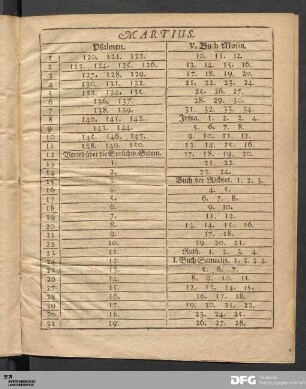 MARTIUS.
Psalmen. V. Buch Mosis.
1 120. 121. 122. 10. 11. 12.
2 123. 124. 125. 126. 13. 14. 15. 16.
3 127. 128. 129. 17. 18. 19. 20.
4 130. 131. 132. 21. 22. 23. 24.
5 133. 134. 135. 25. 26. 27.
6 136. 137. 28. 29. 30.
7 138. 139. 31. 32. 33. 34.
8 140. 141. 142. Josua. 1. 2. 3. 4.
9 143. 144. 5. 6. 7. 8.
10 145. 146. 147. 9. 10. 11. 12.
11 148. 149. 150. 13. 14. 15. 16.
12 Vorred über die Sprüchw. Salom. 17. 18. 19. 20.
13 21. 22.
14 2. 23. 24.
15 3. Buch der Richter. 1. 2. 3.
16 4. 4. 5.
17 5. 6. 7. 8.
18 6. 9. 10.
19 7. 11. 12.
20 8. 13. 14. 15. 16.
21 9. 17. 18.
22 10. 19. 20. 21.
23 11. Ruth. 1. 2. 3. 4.
24 12. I. Buch Samuelis. 1. 2. 3. 4.
25 13. 5. 6. 7.
26 14. 8. 9. 10. 11.
27 15. 12. 13. 14. 15.
28 16. 16. 17. 18.
29 17. 19. 20. 21. 22.
30 18. 23. 24. 25.
31 19. 26. 27. 28.
DFG